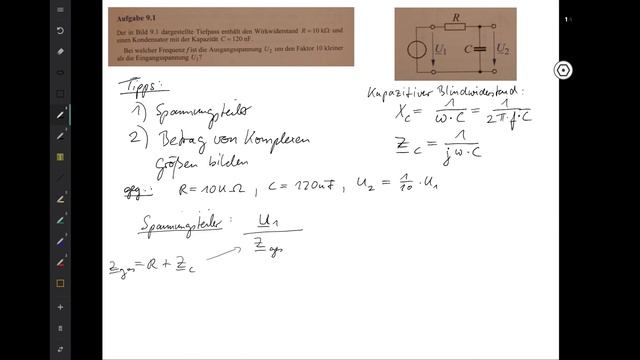 Aufgabe 9.1
Der in Bild 9.1 dargestellte Tiefpass enthält den Wirkwiderstand R = 10 kΩ und
einen Kondensator mit der Kapazität C = 120 nF.
Bei welcher Frequenz f ist die Ausgangsspannung U₂ um den Faktor 10 kleiner
als die Eingangsspannung U₁?
R
U₁
C
U₂
Tipps:
1) Spannungsteiler
2) Betrag von Komplexen
Größen bilden
Kapazitiver Blindwiderstand:
X_c = 1/(ω·C) = 1/(2π·f·C)
Z_c = 1/(jω·C)
geg.: R = 10kΩ, C = 120nF, U₂ = 1/10 · U₁
Spannungsteiler: U₁/Z_ges
Z_ges = R + Z_c